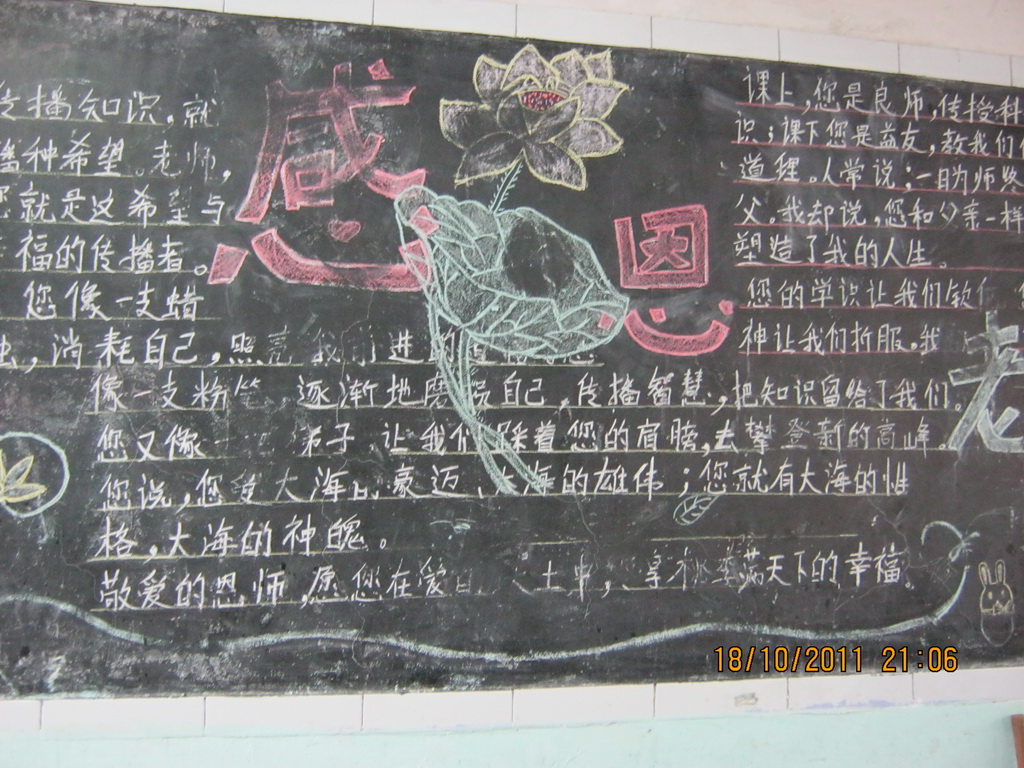 感恩
传播知识，就
播种希望。老师，
您就是这希望与
福的传播者。
您像一支蜡
烛，消耗自己，照亮我们前进的
像一支粉笔 逐渐地磨 自己，传播智慧，把知识留给了我们。
您又像 弟子 让我们踩着您的肩膀，去攀登新的高峰
您说，您爱大海的豪迈、大海的雄伟；您就有大海的性
格，大海的神魄。
敬爱的恩师，愿您在 土中， 享桃李满天下的幸福。
课上，您是良师，传授科
识；课下您是益友，教我们
道理。人常说：一日为师终
父，我却说，您和父亲一样
塑造了我的人生。
您的学识让我们钦
神让我们折服。我
老
18/10/2011 21:06